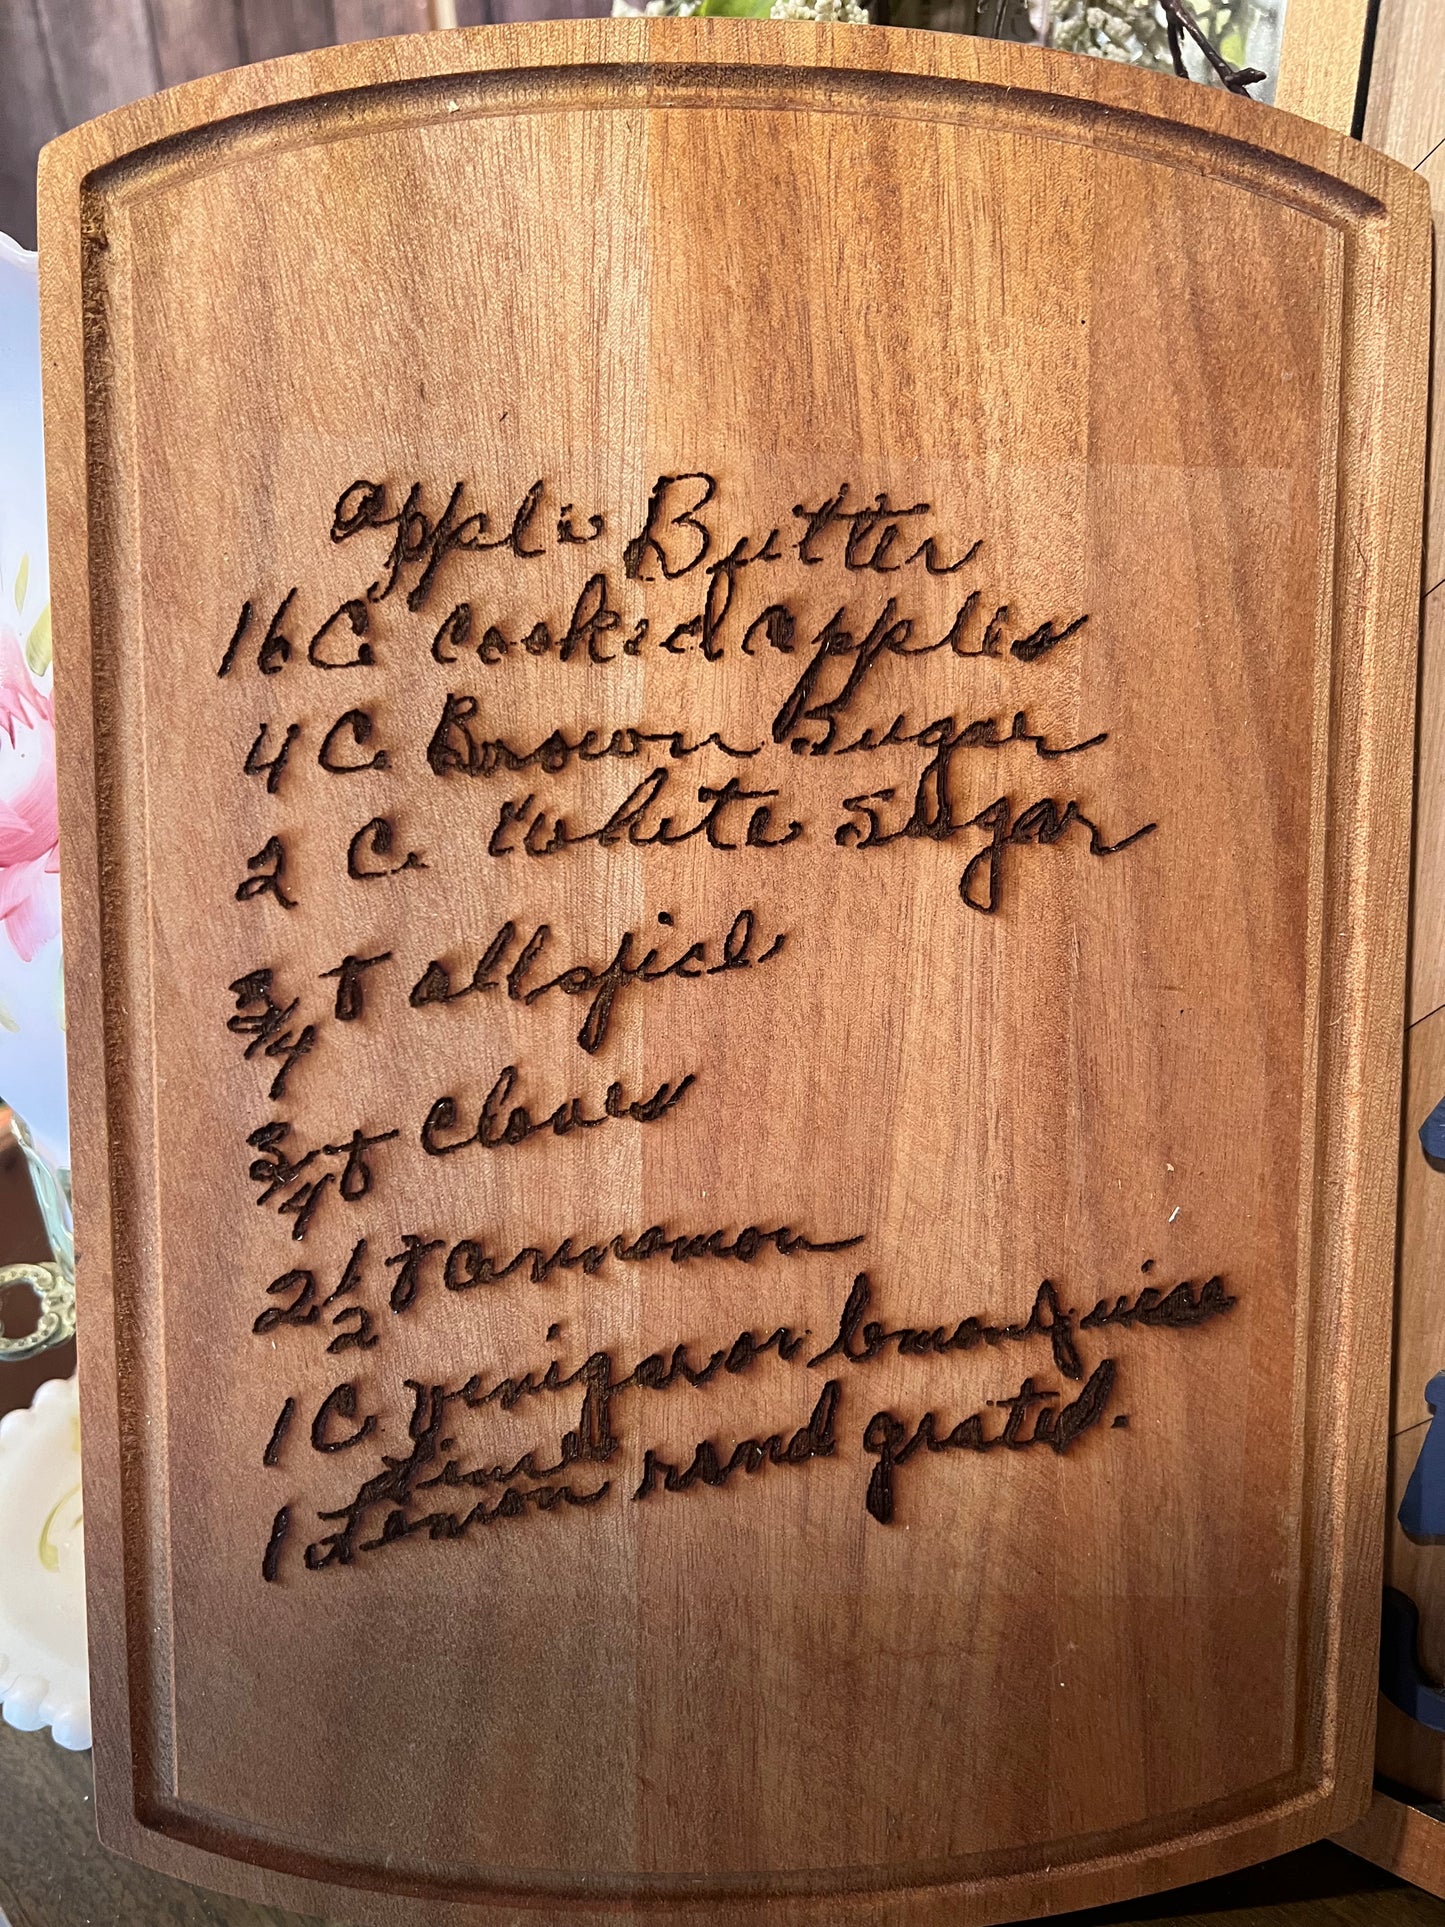 apple Butter
16 C. cooked apples
4 C. Brown Sugar
2 C. White Sugar
3/4 t allspice
3/4 t cloves
2 1/2 t Cinnamon
1 C venigar or lemon juice
Lime
1 Lemon rind grated.